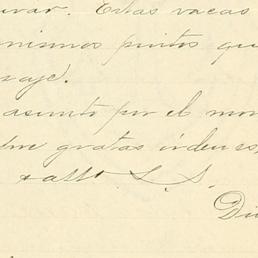 uvar. Estas vacas
mismos puntos qu
aje).
asunto por el mom
gratas órdenes,
atto S. S.
Di